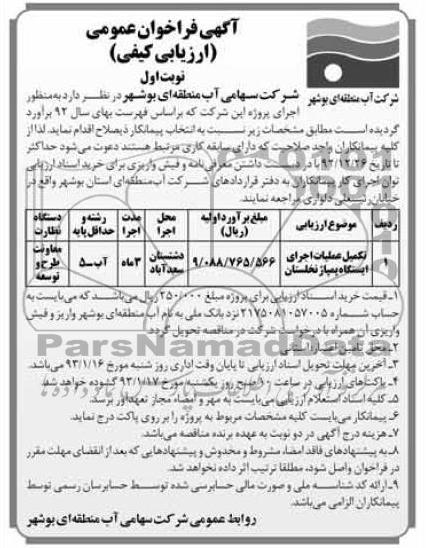 آگهی فراخوان عمومی
(ارزیابی کیفی)
نوبت اول
شرکت آب منطقه‌ای بوشهر
شرکت سهامی آب منطقه‌ای بوشهر در نظر دارد به‌منظور
اجرای پروژه این شرکت که براساس فهرست بهای سال ۹۲ برآورد
گردیده است مطابق مشخصات زیر نسبت به انتخاب پیمانکار ذیصلاح اقدام نماید. لذا از
کلیه پیمانکاران واجد صلاحیت که دارای سابقه کاری مرتبط هستند دعوت می‌شود حداکثر
تا تاریخ ۹۲/۱۲/۲۶ با در دست داشتن معرفی‌نامه و فیش واریزی برای خرید اسناد ارزیابی
توان اجرای کار پیمانکاران به دفتر قراردادهای شرکت آب منطقه‌ای استان بوشهر واقع در
خیابان رئیسعلی دلواری مراجعه نمایند.
ردیف | موضوع ارزیابی | مبلغ برآورد اولیه (ریال) | محل اجرا | مدت اجرا | رشته و حداقل پایه | دستگاه نظارت
۱ | تکمیل عملیات اجرای ایستگاه پمپاژ نخلستان | ۹/۰۸۸/۷۶۵/۵۶۶ | دشتستان سعدآباد | ۳ماه | آب-۵ | معاونت طرح و توسعه
۱-قیمت خرید اسناد ارزیابی برای پروژه مبلغ ۲۵۰/۰۰۰ ریال می‌باشد که می‌بایست به
حساب شماره ۲۱۷۵۰۸۱۰۵۷۰۰۵ نزد بانک ملی به نام آب منطقه‌ای بوشهر واریز و فیش
واریزی آن همراه با درخواست شرکت در مناقصه تحویل گردد.
۲- محل تامین اعتبار: استانی
۳- آخرین مهلت تحویل اسناد ارزیابی تا پایان وقت اداری روز شنبه مورخ ۹۳/۱/۱۶ می‌باشد.
۴- پاکت‌های ارزیابی در ساعت ۱۰ صبح روز یکشنبه مورخ ۹۳/۱/۱۷ گشوده خواهد شد.
۵- کلیه اسناد استعلام ارزیابی می‌بایست به مهر و امضاء مجاز تعهدآور برسد.
۶- پیمانکار می‌بایست کلیه مشخصات مربوط به پروژه را بر روی پاکت درج نماید.
۷-هزینه درج آگهی در دو نوبت به عهده برنده مناقصه می‌باشد.
۸-به پیشنهادهای فاقد امضا، مشروط و مخدوش و پیشنهادهایی که بعد از انقضای مهلت مقرر
در فراخوان واصل شود، مطلقا ترتیب اثر داده نخواهد شد.
۹-ارائه کد شناسه ملی و صورت مالی حسابرسی شده توسط حسابرسان رسمی توسط
پیمانکاران الزامی می‌باشد.
روابط عمومی شرکت سهامی آب منطقه‌ای بوشهر
ParsNamadData